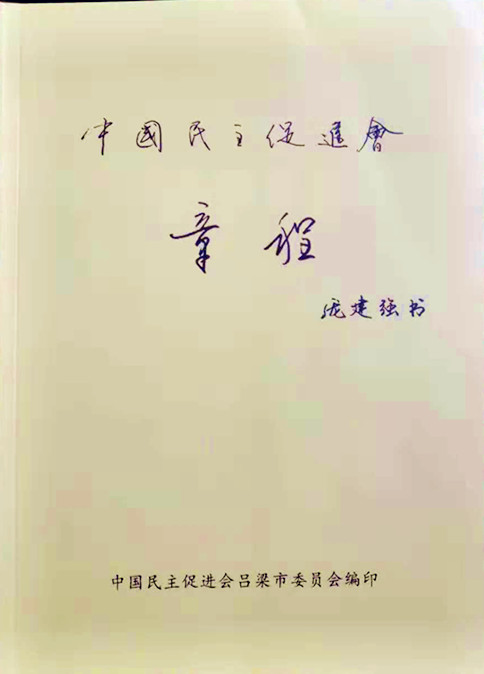 中國民主促進會
章程
庞建强书
中国民主促进会吕梁市委员会编印